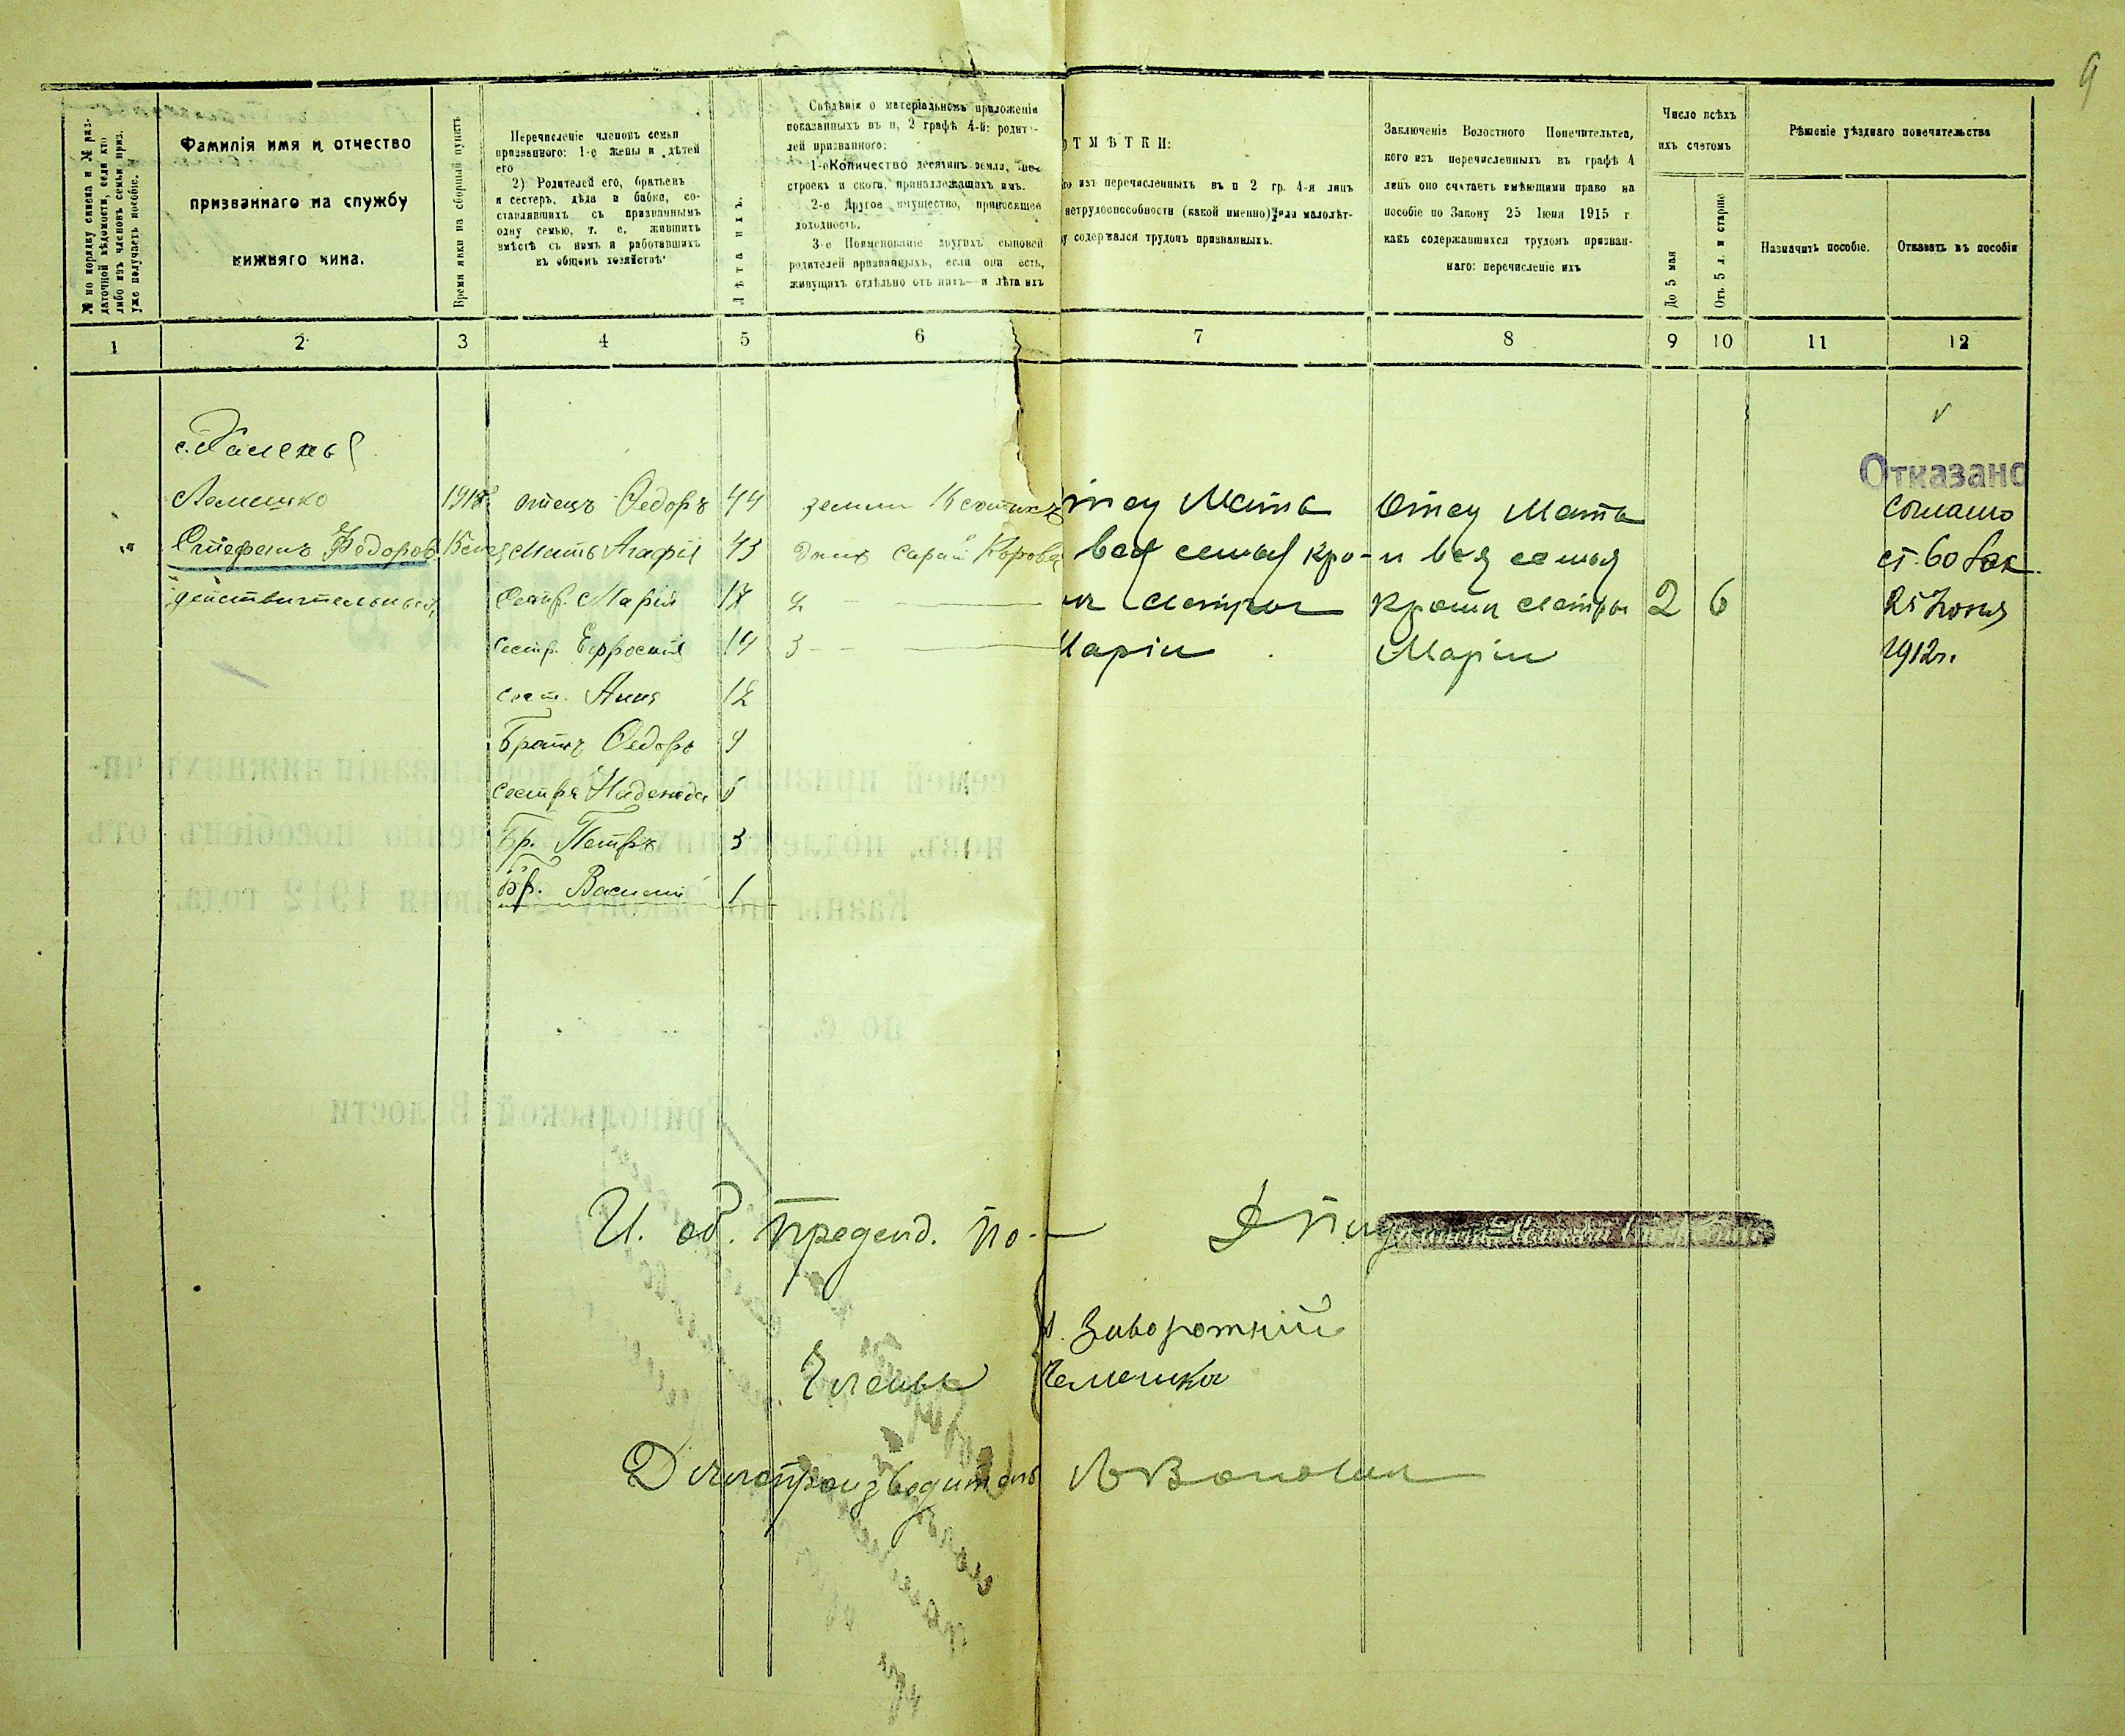 9
№ по порядку списка и № раз-
даточной вѣдомости, если кто
либо изъ членовъ семьи приз.
уже получаетъ пособіе.
Фамилія имя и отчество
призваннаго на службу
нижняго чина.
Время явки на сборный пунктъ
Перечисленіе членовъ семьи
призваннаго: 1-е жены и дѣтей
его
2) Родителей его, братьевъ
и сестеръ, дѣда и бабки, со-
ставлявшихъ съ призваннымъ
одну семью, т. е. жившихъ
вмѣстѣ съ нимъ и работавшихъ
въ общемъ хозяйствѣ
Лѣта ихъ.
Свѣдѣнія о матеріальномъ приложеніи
показанныхъ въ п, 2 графѣ 4-й: родите-
лей призваннаго:
1-е Количество десятинъ земли, пос-
строекъ и скота, принадлежащихъ имъ.
2-е Другое имущество, приносящее
доходность.
3-е Поименованіе другихъ сыновей
родителей призванныхъ, если они есть,
живущихъ отдѣльно отъ нихъ—и лѣта ихъ
ОТМѢТКИ:
изъ перечисленныхъ въ п 2 гр. 4-я лицъ
нетрудоспособности (какой именно) или малолѣт-
у содержался трудомъ призванныхъ.
Заключеніе Волостного Попечительтва,
кого изъ перечисленныхъ въ графѣ 4
лецъ оно считаетъ имѣющими право на
пособіе по Закону 25 Іюня 1915 г
какъ содержавшихся трудомъ призван-
наго: перечисленіе ихъ
Число всѣхъ
ихъ счетомъ
До 5 мая
Отъ 5 л. и старше
Рѣшеніе уѣзднаго попечительства
Назначить пособіе.
Отказать въ пособіи
1 2 3 4 5 6 7 8 9 10 11 12
Отказано
Лемешко 191 отецъ Федоръ 44 земли Отцу Мать согласно
Стефанъ Федоров. Мать Агафія 43 домъ сарай Корова вся семья кро- и вся семья ст. 60 Зак.
действительный сестр. Марія 17 2 — сестры кроми сестры 2 6 25 Июня
сестр. Ефросинія 14 3 — Маріи Маріи 1912 г.
сест. Анна 12
Братъ Федоръ 9
сестра Надежда 5
Бр. Петръ 3
Бр. Василій 1
И. об. предсѣд. по-
Заворотній
Члены Лемешко
Дѣлопроизводитель